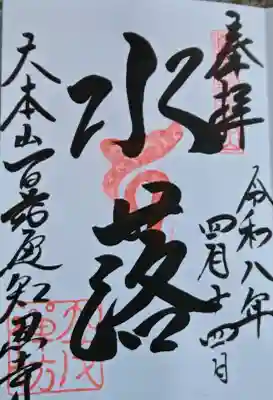 奉拝
令和八年
四月十四日
水落
大本山百萬遍知恩寺